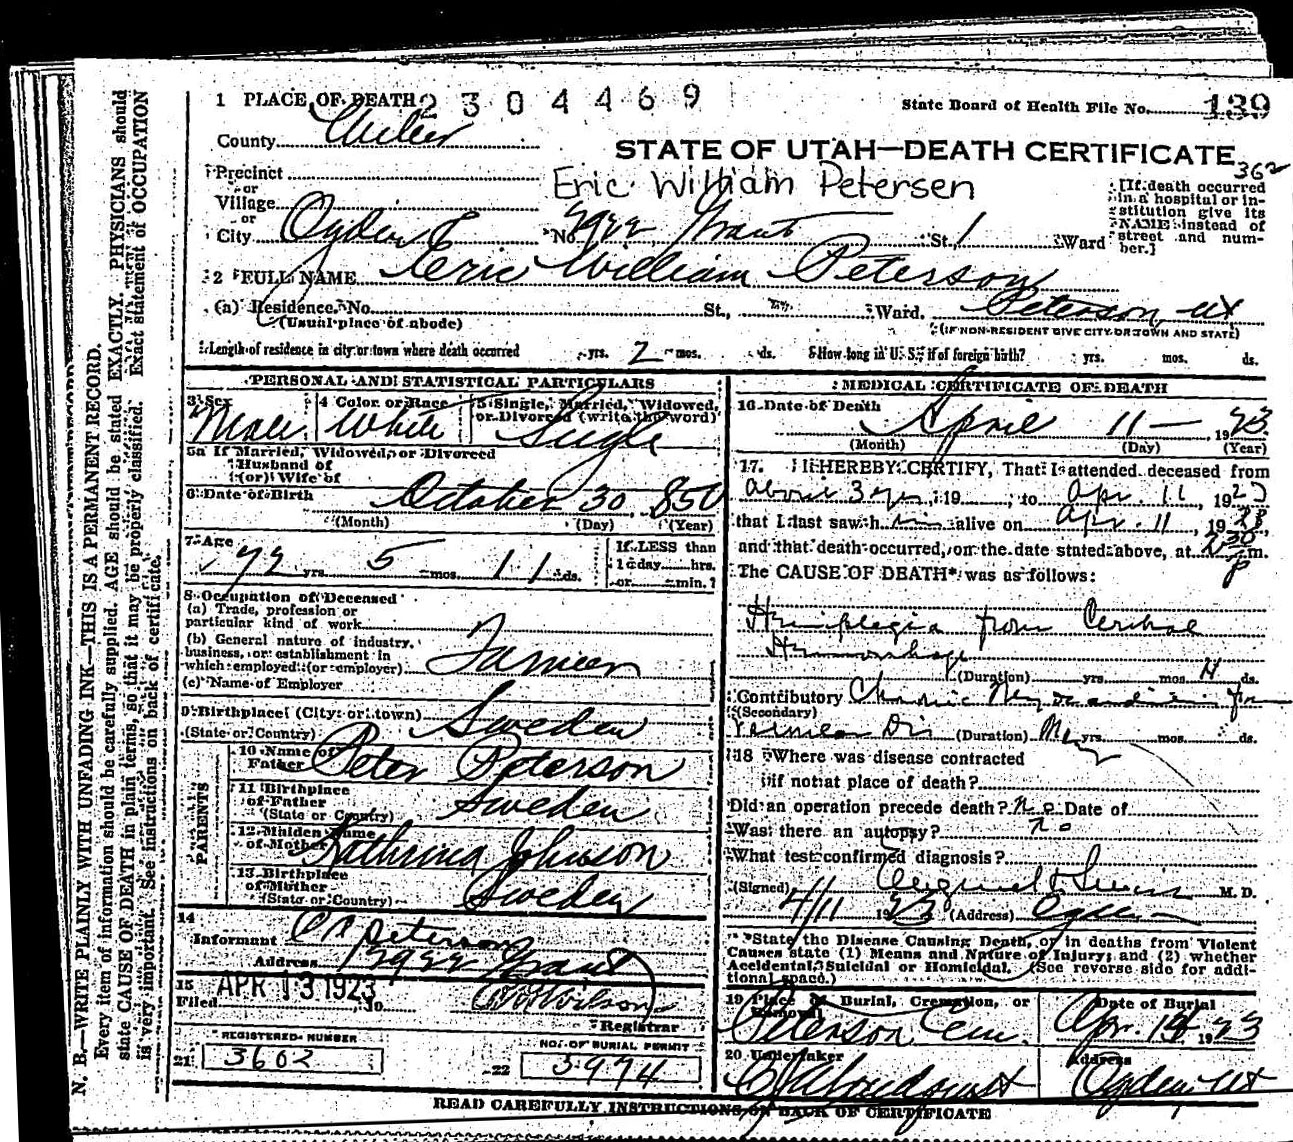 1 PLACE OF DEATH 2304469
State Board of Health File No. 139
County Weber
STATE OF UTAH—DEATH CERTIFICATE
362
Precinct
Eric William Petersen
or
Village
or
City Ogden No. 2922 Grant St. 1 Ward
[If death occurred in a hospital or institution give its NAME instead of street and number.]
2 FULL NAME Eric William Peterson
(a) Residence. No. St., Ward. Peterson, Ut
(Usual place of abode)
(IF NON-RESIDENT GIVE CITY OR TOWN AND STATE)
Length of residence in city or town where death occurred yrs. 2 mos. ds. How long in U. S., if of foreign birth? yrs. mos. ds.
PERSONAL AND STATISTICAL PARTICULARS
3 Sex Male
4 Color or Race White
5 Single, Married, Widowed, or Divorced (write the word) Single
5a If Married, Widowed, or Divorced
Husband of
(or) Wife of
6 Date of Birth October 30, 850
(Month) (Day) (Year)
7 Age 72 yrs. 5 mos. 11 ds.
If LESS than
1 day hrs.
or min.?
8 Occupation of Deceased
(a) Trade, profession or
particular kind of work
(b) General nature of industry,
business, or establishment in
which employed (or employer) Farmer
(c) Name of Employer
9 Birthplace (City or town)
(State or Country) Sweden
PARENTS
10 Name of
Father Peter Peterson
11 Birthplace
of Father
(State or Country) Sweden
12 Maiden Name
of Mother Kathrina Johnson
13 Birthplace
of Mother
(State or Country) Sweden
14
Informant Peterson
Address 2922 Grant
15
Filed APR 13 1923, 19 Wilson
Registrar
REGISTERED NUMBER
21 3602
NO. OF BURIAL PERMIT
22 5974
MEDICAL CERTIFICATE OF DEATH
16 Date of Death April 11 — 1923
(Month) (Day) (Year)
17. I HEREBY CERTIFY, That I attended deceased from
about 3 yrs, 19 , to Apr. 11 1923
that I last saw him alive on Apr. 11, 1923
and that death occurred, on the date stated above, at 2 30 P m.
The CAUSE OF DEATH* was as follows:
Hemiplegia from Cerebral
Hemorrhage
(Duration) yrs. mos. 4 ds.
Contributory Chronic
(Secondary)
(Duration) Many yrs. mos. ds.
18 Where was disease contracted
if not at place of death?
Did an operation precede death? No Date of
Was there an autopsy? No
What test confirmed diagnosis?
(Signed) M. D.
4/11 1923 (Address) Ogden
*State the Disease Causing Death, or in deaths from Violent
Causes state (1) Means and Nature of Injury; and (2) whether
Accidental, Suicidal or Homicidal. (See reverse side for addi-
tional space.)
19 Place of Burial, Cremation, or
Removal
Peterson Cem.
Date of Burial
Apr. 14 1923
20 Undertaker
Address
Ogden Ut
READ CAREFULLY INSTRUCTIONS ON BACK OF CERTIFICATE
N. B.—WRITE PLAINLY WITH UNFADING INK—THIS IS A PERMANENT RECORD.
Every item of information should be carefully supplied. AGE should be stated EXACTLY. PHYSICIANS should
state CAUSE OF DEATH in plain terms, so that it may be properly classified. Exact statement of OCCUPATION
is very important. See instructions on back of certificate.